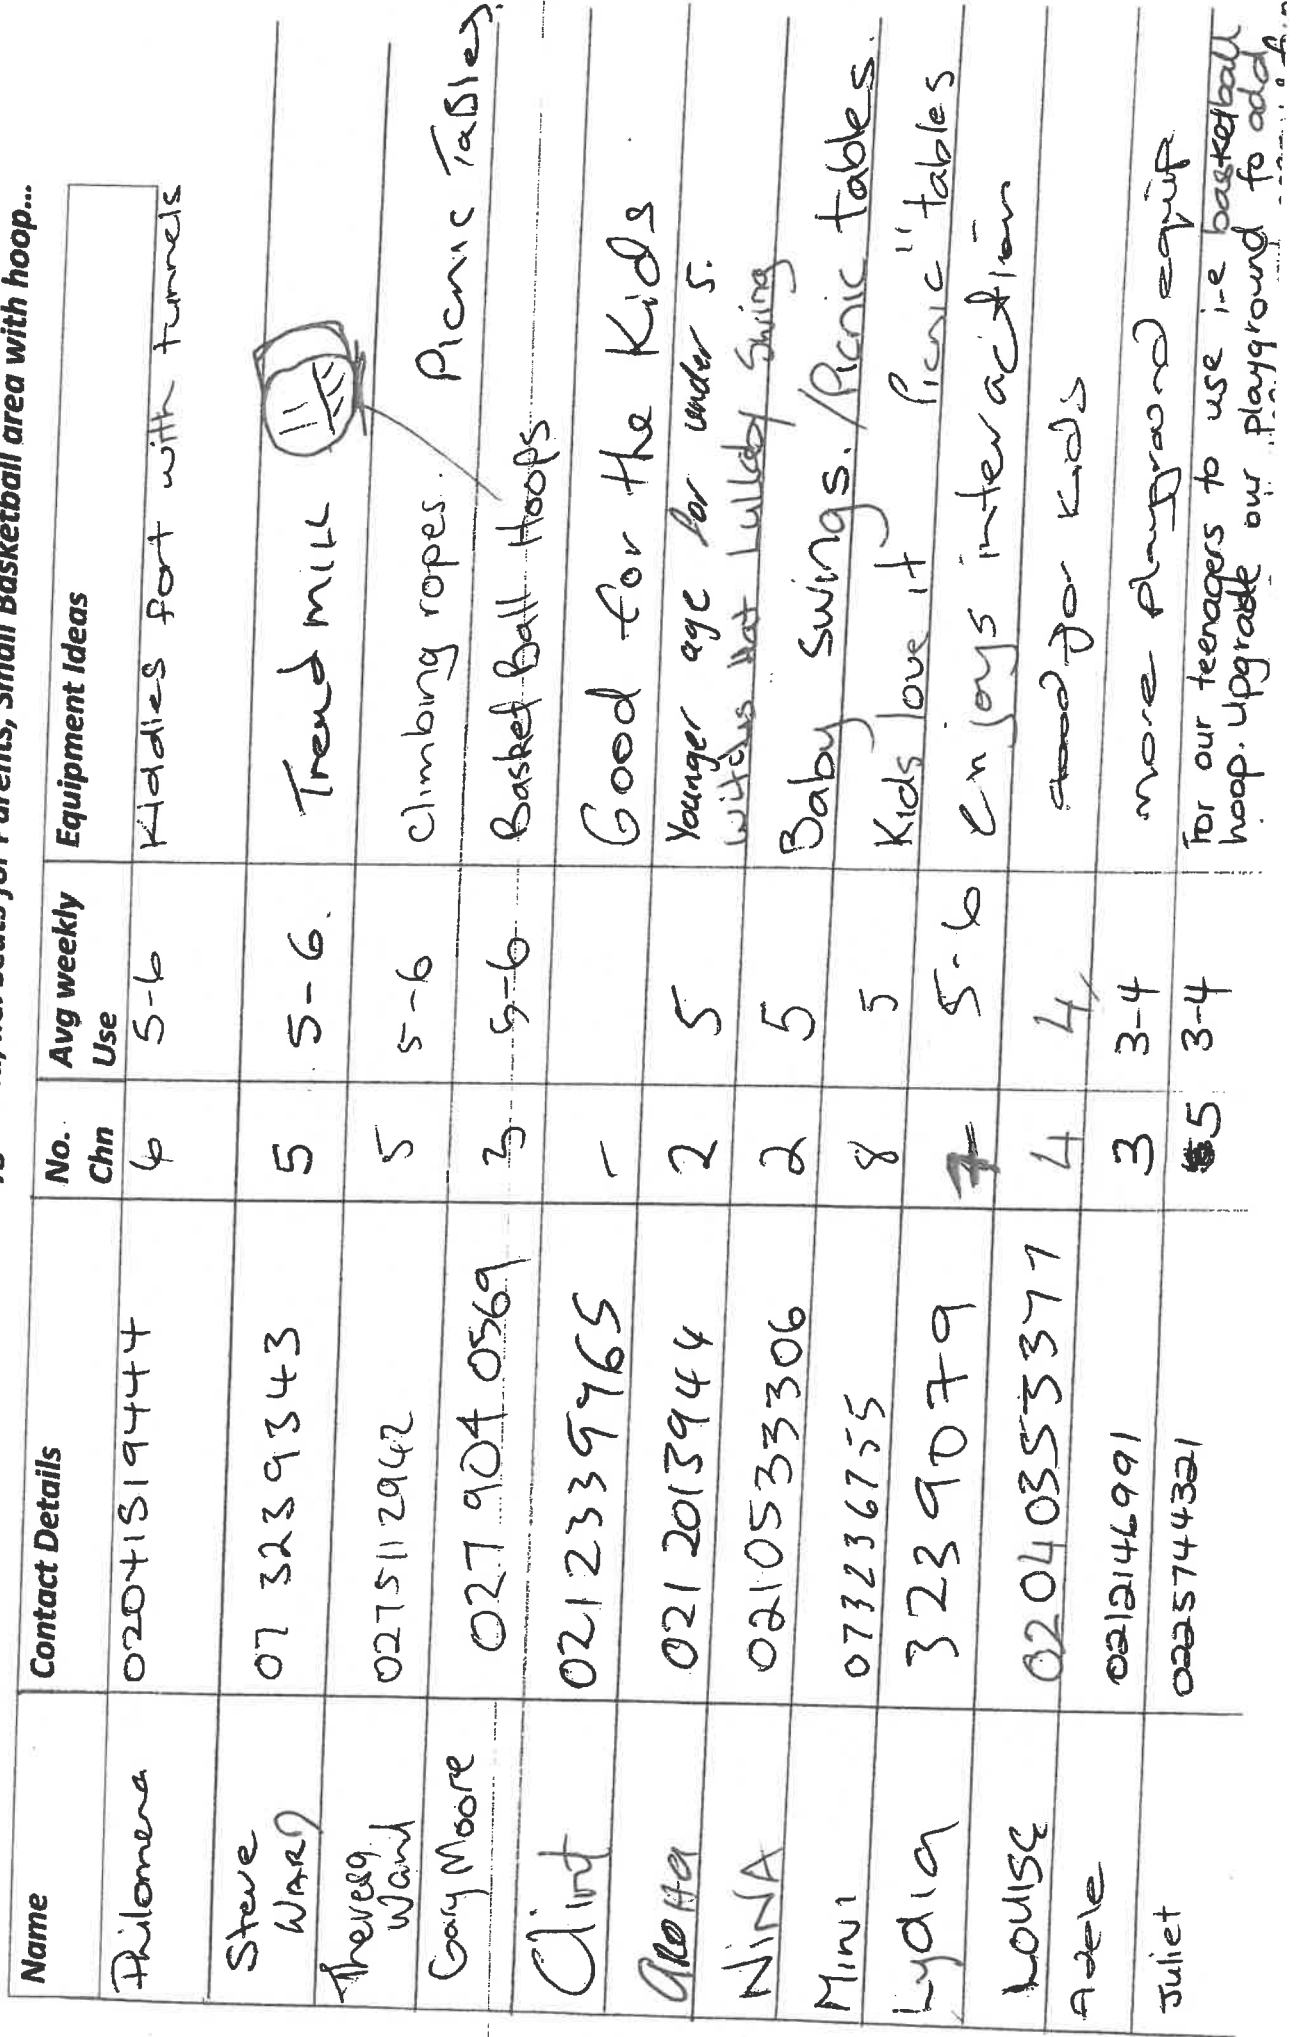 seats for Parents, Small Basketball area with hoop...
Name Contact Details No. Chn Avg weekly Use Equipment Ideas
Philomena 02041519444 6 5-6 Kiddies fort with tunnels
Steve Ward 07 3239343 5 5-6. Tread mill
Theresa Ward 0275112942 5 5-6 Climbing ropes. Picnic Tables.
Gary Moore 027 904 0569 3 5-6 BasketBall Hoops
Clint 021 2339965 - Good for the Kids
Aroha 021 2013944 2 5 Younger age for under 5.
Witches Hat Lullaby Swing
NiNA 0210533306 2 5 Baby swings. /Picnic tables.
Mini 073236755 8 5 Kids love it Picnic "tables
Lydia 3239079 7 5-6 enjoys interaction
Louise 02040355377 4 4 good for kids
Adele 0212146991 3 3-4 more playground equip
Juliet 0225744321 5 3-4 For our teenagers to use i-e basketball
hoop. Upgrade our playground to add